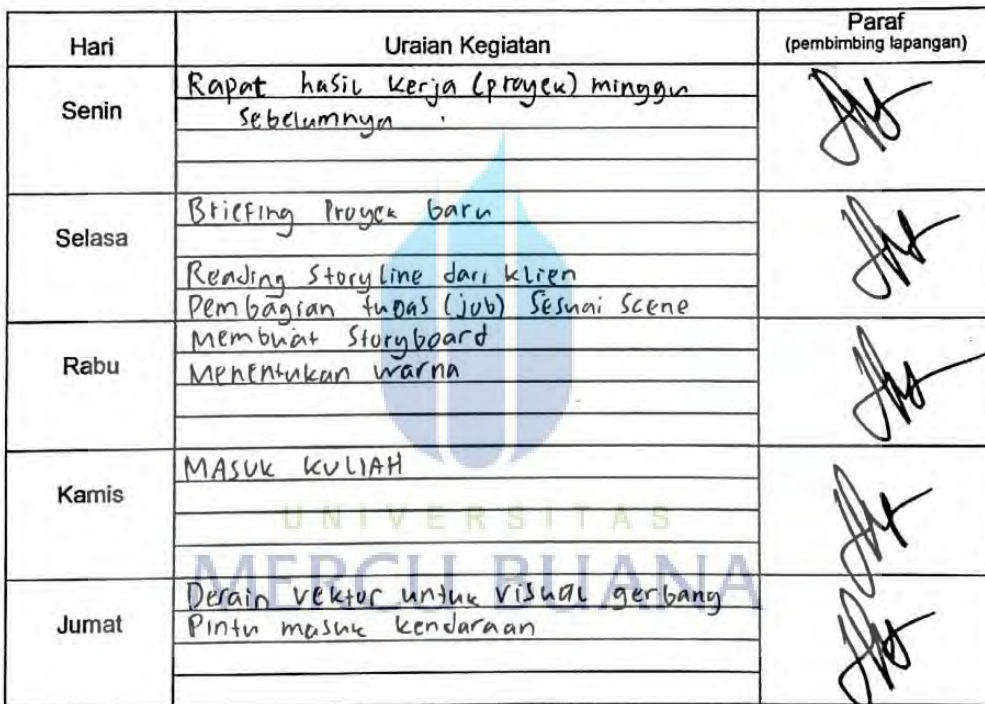 Hari
Uraian Kegiatan
Paraf
(pembimbing lapangan)
Senin
Rapat hasil kerja (proyek) minggu
sebelumnya
Selasa
Briefing Proyek baru
Reading Storyline dari klien
Pembagian tugas (job) Sesuai Scene
Rabu
Membuat Storyboard
Menentukan warna
Kamis
MASUK KULIAH
UNIVERSITAS
MERCU BUANA
Jumat
Desain vektor untuk visual gerbang
Pintu masuk kendaraan